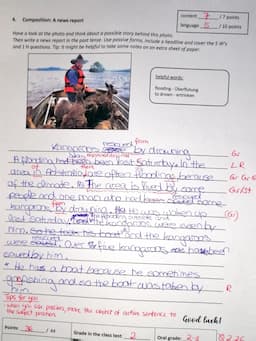 content 7 / 7 points
language 5 / 10 points
4. Composition: A news report
Have a look at the photo and think about a possible story behind this photo.
Then write a news report in the past tense. Use passive forms, include a headline and cover the 5 W's
and 1 H questions. Tip: It might be helpful to take some notes on an extra sheet of paper.
helpful words:
flooding - Überflutung
to drown - ertrinken
rescued from
Kangaroos by drowning
Gr
A flooding had been last Saturday. In the
LR
area of Australia are often floodings because
Gr Gr
of the climate. The area is lived by some
people and one man who had saved some
kangaroos by drowning. He was woken up
last Saturday and the kangaroos were seen by
him. and the kangaroos
were saved. Over five kangaroos had been
saved by him.
* He has a boat because he sometimes
go fishing and so the boat was taken by
him
R
Tips for you:
- when you use passives, move the object of active sentence to
the subject position.
Good luck!
Points: / 44
Grade in the class test: 2
Oral grade: 2-3